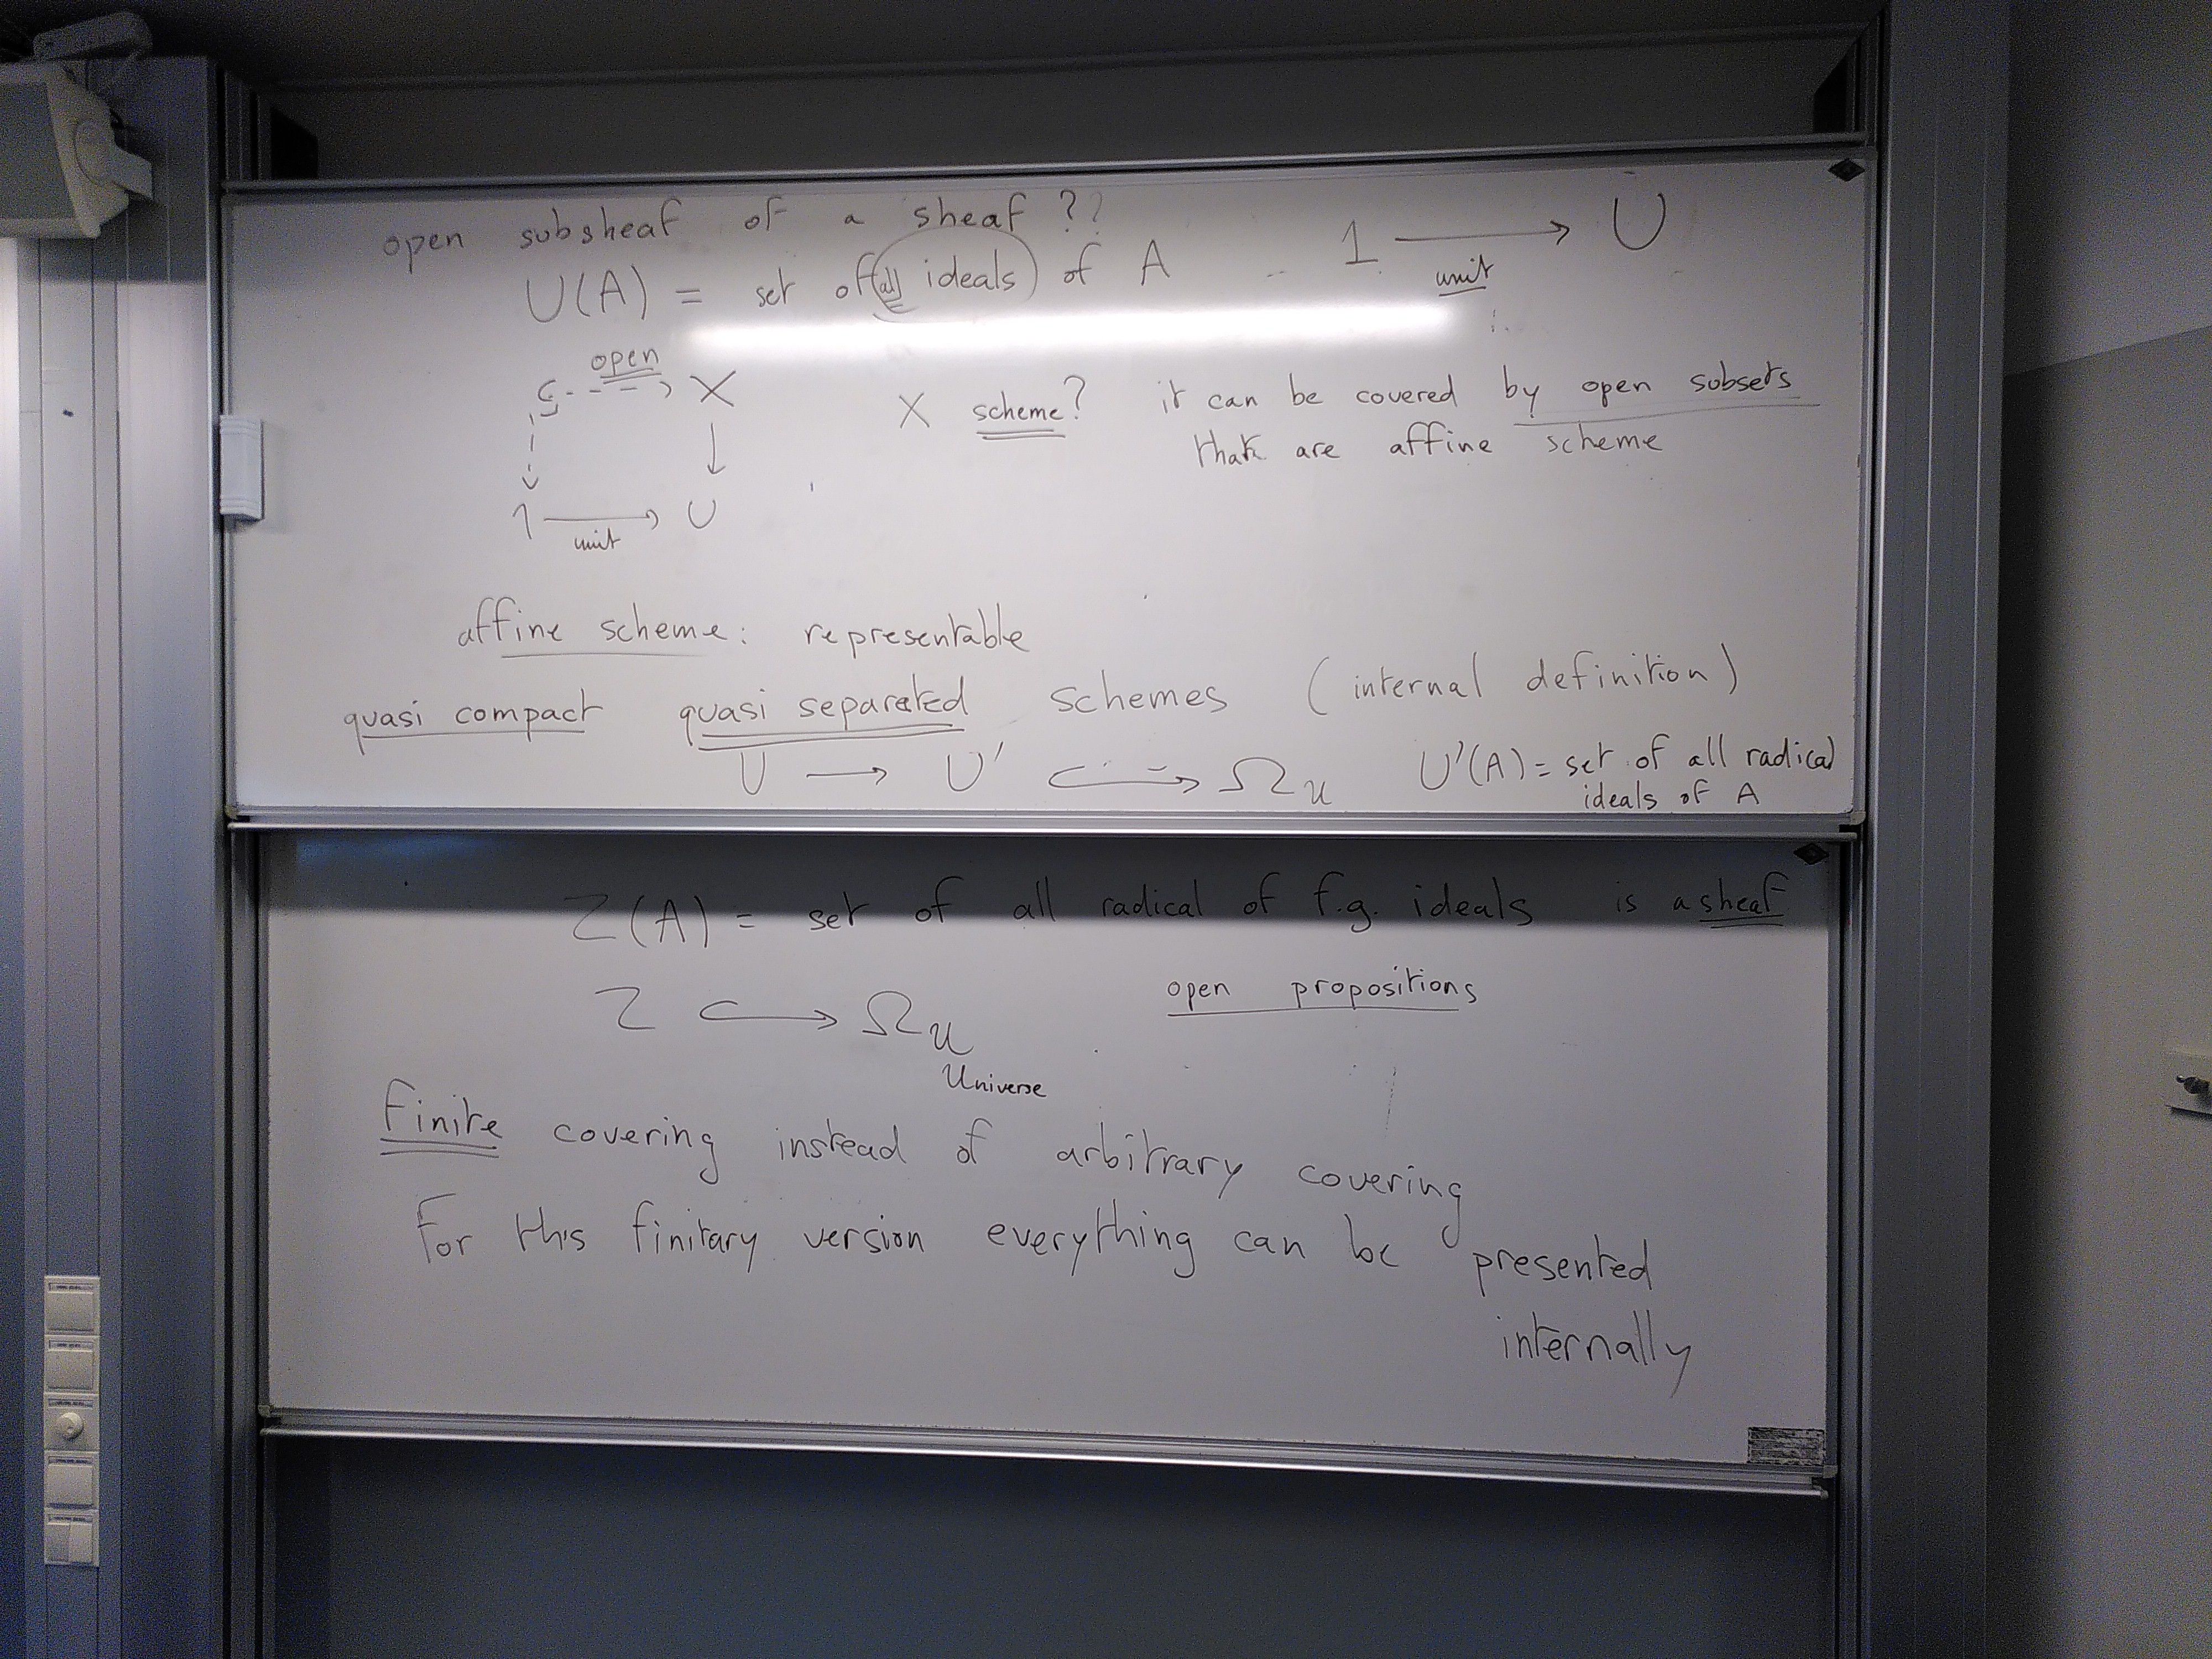 open subsheaf of a sheaf ??
U(A) = set of (all ideals) of A
1 ⟶ U
unit
open
⊂ - - → X
↓
1 ⟶ U
unit
X scheme? it can be covered by open subsets
that are affine scheme
affine scheme: representable
quasi compact quasi separated schemes (internal definition)
U ⟶ U' ↪ Ω_U U'(A) = set of all radical
ideals of A
Z(A) = set of all radical of f.g. ideals is a sheaf
Z ↪ Ω_U open propositions
Universe
Finite covering instead of arbitrary covering
For this finitary version everything can be presented
internally